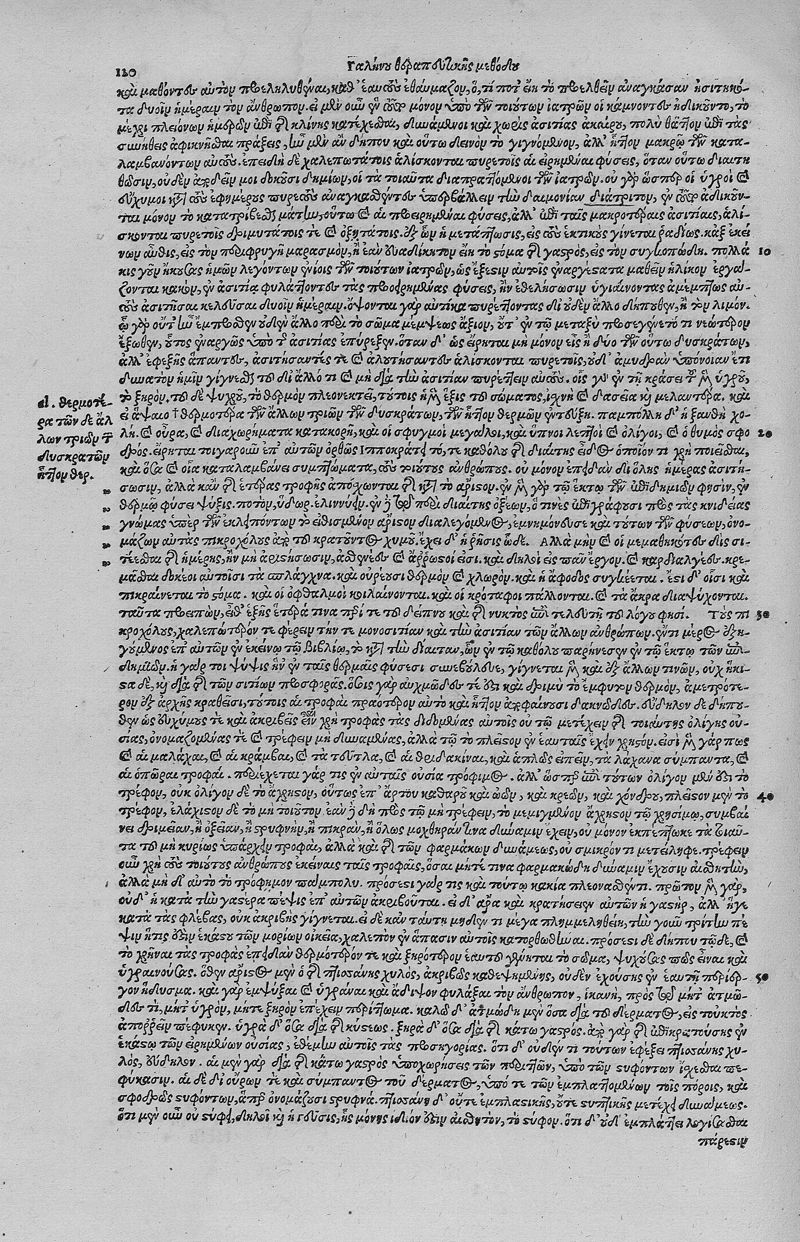 120 Γαληνοῦ θεραπευτικῆς μεθόδου
καὶ μαθόντες αὐτὸν προεληλυθέναι, καθ' ἑαυτοὺς ἐθαύμαζον, ὅ, τί ποτ' εἴη τὸ προελθεῖν ἀναγκάσαν ἠσιτηκό-
τα δυοῖν ἡμέραιν τὸν ἄνθρωπον. εἰ μὲν οὖν ἓν τοῦτο μόνον ὑπὸ τῶν τοιούτων ἰατρῶν οἱ κάμνοντες ἠδικοῦντο, τὸ
μέχρι πλειόνων ἡμερῶν ἐπὶ τῆς κλίνης κατέχεσθαι, δυνάμενοι καὶ χωρὶς ἀσιτίας ἀκαίρου, πολὺ θᾶττον ἐπὶ τὰς
συνήθεις ἀφικνεῖσθαι πράξεις, ἦν μὲν ἂν δήπου καὶ οὕτω δεινὸν τὸ γιγνόμενον, ἀλλ' ἧττον μακρῷ τῶν κατα-
λαμβανόντων αὐτούς. ἐπειδὴ δὲ χαλεπωτάτοις ἁλίσκονται πυρετοῖς αἱ εἰρημέναι φύσεις, ὅταν οὕτω διαιτη
θῶσιν, οὐδὲν
μοι δοκοῦσι δημίων, οἱ τὰ τοιαῦτα διαπραττόμενοι τῶν ἰατρῶν. οὐ γὰρ ὥσπερ οἱ ὑγροὶ καὶ
εὔχυμοι
ται μόνον τὸ κατατριβῆναι μάτην, οὕτω καὶ αἱ προειρημέναι φύσεις, ἀλλ' ἐπὶ ταῖς μακροτέραις ἀσιτίαις, ἁλί-
σκονται πυρετοῖς δριμυτάτοις τε καὶ ὀξυτάτοις. ἐξ ὧν ἡ μετάπτωσις, εἰς τοὺς ἑκτικοὺς γίνεται ῥᾳδίως. κἀξ ἐκεί
νων αὖθις, εἰς τὸν περιφρυγῆ μαρασμόν, ἢ ἐὰν εὐαδίκητον εἴη τὸ στόμα τῆς γαστρός, εἰς τὸν συγκοπώδη. πολλά 10
κις γοῦν ἠκούσας ἡμῶν λεγόντων ἐνίοις τῶν τοιούτων ἰατρῶν, ὡς ἔξεστιν αὐτοῖς ἐναργέστατα μαθεῖν ἡλίκον ἐργά-
ζονται κακόν, ἐν ἀσιτίᾳ φυλάττοντες τὰς προειρημένας φύσεις, ἢν ἐθελήσωσιν ὑγιαίνοντας ἀμέμπτως αὐ-
τοὺς ἀσιτῆσαι κελεῦσαι δυοῖν ἡμέραιν. ὄψονται γὰρ αὐτίκα πυρέττοντας δι' οὐδὲν ἄλλο δήπουθεν, ἢ τὸν λιμόν.
ἔξωθεν, οὗτος ἐναργῶς ὑπὸ τῆς ἀσιτίας ἐπύρεξεν. ὅταν δ' ὡς εἴρηται μὴ μόνον εἷς ἢ δύο τῶν οὕτω δυσκράτων,
ἀλλ' ἐφεξῆς ἅπαντες, ἀσιτήσαντές τε καὶ ἀλουτήσαντες ἁλίσκονται πυρετοῖς, οὐδ' ἀμυδρὰν ὑπόνοιαν ἔτι
δυνατὸν ἡμῖν γίνεσθαι τοῦ δι' ἄλλο τι καὶ μὴ διὰ τὴν ἀσιτίαν πυρέττειν αὐτούς. οἷς γὰρ ἐν τῇ κράσει τοῦ μὲν ὑγροῦ,
τὸ ξηρόν, τοῦ δὲ ψυχροῦ, τὸ θερμὸν πλεονεκτεῖ, τούτοις ἡ μὲν ἕξις τοῦ σώματος, ἰσχνὴ καὶ δασεῖα καὶ μελαντέρα. καὶ
εἰ ἅψαιο † θερμοτέρα τῶν ἄλλων τριῶν τῶν δυσκράτων, τῶν ἧττον θερμῶν ἐντεύξῃ. παμπόλλη δ' ἡ ξανθὴ χο-
λή. καὶ οὖρα, καὶ διαχωρήματα κατακορῆ, καὶ οἱ σφυγμοὶ μεγάλοι, καὶ ὕπνοι λεπτοὶ καὶ ὀλίγοι, καὶ ὁ θυμὸς σφο 20
δρός. εἴρηται τοιγαροῦν ἐπ' αὐτῶν ὀρθῶς Ἱπποκράτει τό, τε καθόλου τῆς διαίτης εἶδος ὁποῖόν τι χρὴ ποιεῖσθαι,
καὶ ὅσα καὶ οἷα καταλαμβάνει συμπτώματα, τοὺς τοιούτους ἀνθρώπους. οὐ μόνον ἐπειδὰν δι' ὅλης ἡμέρας ἀσιτή-
σωσιν, ἀλλὰ κἂν τῆς ἑτέρας τροφῆς ἀπόσχωνται
θερμῷ φύσει ψύξις. ποτόν, ὕδωρ. ἐλιννύειν. ἐν δὲ τῷ περὶ διαίτης ὀξέων, ὅ τινες ἐπιγράφουσι πρὸς τὰς κνιδείας
γνώμας ὑπὲρ τῶν ἐκλειπόντων τὸ εἰθισμένον ἄριστον διαλεγόμενος, ἐμνημόνευσε καὶ τούτων τῶν φύσεων, ὀνο-
μάζων αὐτὰς πικροχόλους ἀπὸ τοῦ κρατοῦντος χυμοῦ. ἔχει δ' ἡ ῥῆσις ὧδε. Ἀλλὰ μὴν καὶ οἱ μεμαθηκότες δὶς σι-
τέεσθαι τῆς ἡμέρης, ἢν μὴ ἀριστήσωσιν, ἀσθενέες καὶ ἄρρωστοί εἰσι. καὶ δειλοὶ εἰς πᾶν ἔργον. καὶ καρδιαλγέες. κρε-
μᾶσθαι δοκέει αὐτοῖσι τὰ σπλάγχνα. καὶ οὐρέουσι θερμὸν καὶ χλωρόν. καὶ ἡ ἄφοδος συγκέεται. ἔστι δ' οἷσι καὶ
πικραίνεται τὸ στόμα. καὶ οἱ ὀφθαλμοὶ κοιλαίνονται. καὶ οἱ κρόταφοι πάλλονται. καὶ τὰ ἄκρα διαψύχονται.
ταῦτα προειπών, εἶθ' ἑξῆς ἕτερά τινα περί τε τοῦ δείπνου καὶ τῆς νυκτὸς ἐπὶ τελευτῇ τοῦ λόγου φησί. Τοὺς πι 30
κροχόλους, χαλεπώτερόν τε φέρειν τήν τε μονοσιτίαν καὶ τὴν ἀσιτίαν τῶν ἄλλων ἀνθρώπων.
γούμενος ἐπ' αὐτῶν ἐν ἐκείνῳ τῷ βιβλίῳ, τὸ κατὰ τὴν δίαιταν, ὧν ἐν τῷ καθόλου παρῄνεσεν ἐν τῷ ἕκτῳ τῶν ἐπι-
δημιῶν. ἡ γάρ τοι ψύξις ἣν ἐν ταῖς θερμαῖς φύσεσι συνεβούλευε, γίγνεται μὲν καὶ ἐξ ἄλλων τινῶν, οὐχ ἥκι-
στα δέ, καὶ διὰ τῆς τῶν σιτίων προσφορᾶς. ὅσοις γὰρ αὐχμῶδές τέ ἐστι καὶ δριμὺ τὸ ἔμφυτον θερμόν, ἀμετρότε-
ρον ἐξ ἀρχῆς κραθεῖσι, τούτοις αἱ τροφαὶ πραότερον αὐτὸ καὶ ἧττον ἀποφαίνουσι δακνῶδες. εὔδηλον δὲ δήπου-
θεν ὡς εὐχύμους τε καὶ ἀκριβεῖς εἶναι χρὴ τροφὰς τὰς διδομένας αὐτοῖς οὐ τῷ μετέχειν τῆς τοιαύτης ὀλίγης οὐ-
σίας, ὀνομαζομένας τε καὶ τρέφειν μὴ δυναμένας, ἀλλὰ τῷ τὸ πλεῖστον ἐν ἑαυταῖς ἔχειν χρηστόν. εἰσὶ μὲν γάρ πως
καὶ αἱ μαλάχαι, καὶ αἱ κράμβαι, καὶ τὰ τεῦτλα, καὶ αἱ θριδακίναι, καὶ ἁπλῶς εἰπεῖν, τὰ λάχανα σύμπαντα, καὶ
αἱ ὀπῶραι τροφαί. περιέχεται γάρ τις ἐν αὐταῖς οὐσία τρόφιμος. ἀλλ' ὥσπερ ἐπὶ τούτων ὀλίγον μέν ἐστι τὸ
τρέφον, οὐκ ὀλίγον δὲ τὸ ἄχρηστον, οὕτως ἐπ' ἄρτου καθαροῦ καὶ ᾠῶν, καὶ κρεῶν, καὶ χόνδρου, πλεῖστον μὲν τὸ 40
τρέφον, ἐλάχιστον δὲ τὸ μὴ τοιοῦτον
νει δριμεῖαν, ἢ ὀξεῖαν, ἢ στρυφνήν, ἢ πικράν, ἢ ὅλως μοχθηράν τινα δύναμιν ἔχειν, οὐ μόνον ἐκπέπτωκε τὰ τοιαῦ-
τα τοῦ μὴ κυρίως ὑπάρχειν τροφαί, ἀλλὰ καὶ τῆς τῶν φαρμάκων δυνάμεως, οὐ σμικρόν τι μετείληφε. τρέφειν
οὖν χρὴ τοὺς τοιούτους ἀνθρώπους ἐκείναις ταῖς τροφαῖς, ὅσαι μήτε τινὰ φαρμακώδη δύναμιν ἔχουσιν αἰσθητήν,
ἀλλὰ μὴ δι' αὐτὸ τὸ τρόφιμον πάμπολυ. πρόσεστι γάρ τις καὶ τούτῳ κακία πλεονάσαντι. πρῶτον μὲν γάρ,
οὐδ' ἡ κατὰ τὴν γαστέρα πέψις ἐπ' αὐτῶν ἀκριβοῦται. εἰ δ' ἄρα καὶ κρατήσειεν αὐτῶν ἡ γαστήρ, ἀλλ' ἥγε
κατὰ τὰς φλέβας, οὐκ ἀκριβὴς γίγνεται. εἰ δὲ κἂν ταύτῃ μηδέν τι μέγα πλημμεληθείη, τὴν γοῦν τρίτην πέ-
ψιν ἥτις ἐστὶν ἑκάστου τῶν μορίων οἰκεία, χαλεπὸν ἐν ἅπασιν αὐτοῖς κατορθωθῆναι. πρόσεστι δὲ δήπου τῷδε, καὶ
τὸ χρῆναι τὰς τροφὰς ἐπειδὰν θερμότερόν τε καὶ ξηρότερον ἑαυτοῦ γένηται τὸ σῶμα, ψυχούσας πως εἶναι καὶ
ὑγραινούσας. ὅθεν ἄριστος μὲν ὁ τῆς πτισσάνης χυλός, ἀκριβῶς καθεψημένης, οὐδὲν ἐχούσης ἐν ἑαυτῇ περίερ- 50
γον ἥδυσμα. καὶ γὰρ ἐμψῦξαι καὶ ὑγρᾶναι καὶ ἄδιψον φυλάξαι τὸν ἄνθρωπον, ἱκανή, πρὸς τῷ μήτ' ἀτμῶ-
δές τι, μήτ' ὑγρόν, μήτε ξηρὸν ἐπέχειν περίττωμα. καλῶ δ' ἀτμώδη μὲν ὅσα διὰ τοῦ δέρματος, εἰς τοὐκτὸς
ἀπορρεῖν πέφυκεν. ὑγρὰ δ' ὅσα διὰ τῆς κύστεως. ξηρὰ δ' ὅσα διὰ τῆς κάτω γαστρός. ἀπὸ γὰρ τῆς ἐπικρατούσης ἐν
ἑκάστῳ τῶν εἰρημένων οὐσίας, ἐθέμην αὐτοῖς τὰς προσηγορίας. ὅτι δ' οὐδέν τι τούτων ἐφέξει πτισσάνης χυ-
λός, εὔδηλον. αἱ μὲν γὰρ διὰ τῆς κάτω γαστρὸς ὑποχωρήσεις τῶν περιττῶν, ὑπὸ τῶν στυφόντων ἴσχεσθαι πε-
φύκασιν. αἱ δὲ δι' οὔρων τε καὶ σύμπαντος τοῦ δέρματος, ὑπό τε τῶν ἐμπλαττομένων τοῖς πόροις, καὶ
σφοδρῶς στυφόντων, ἅπερ ὀνομάζουσι στρυφνά. πτισσάνη δ' οὔτε ἐμπλαστικῆς, οὔτε στυπτικῆς μετέχει δυνάμεως.
ὅτι μὲν οὖν οὐ στύφει, δηλοῖ καὶ ἡ γεῦσις, ἧς μόνης ἴδιόν ἐστιν αἰσθητόν, τὸ στῦφον. ὅτι δ' οὐδ' ἐμπλάττει λογίζεσθαι
πάρεστιν
αἱ. θερμοτέ-
ρα τῶν δὲ ἄλ
λων τριῶν τῶν
δυσκράτων
ἧττον θερ.